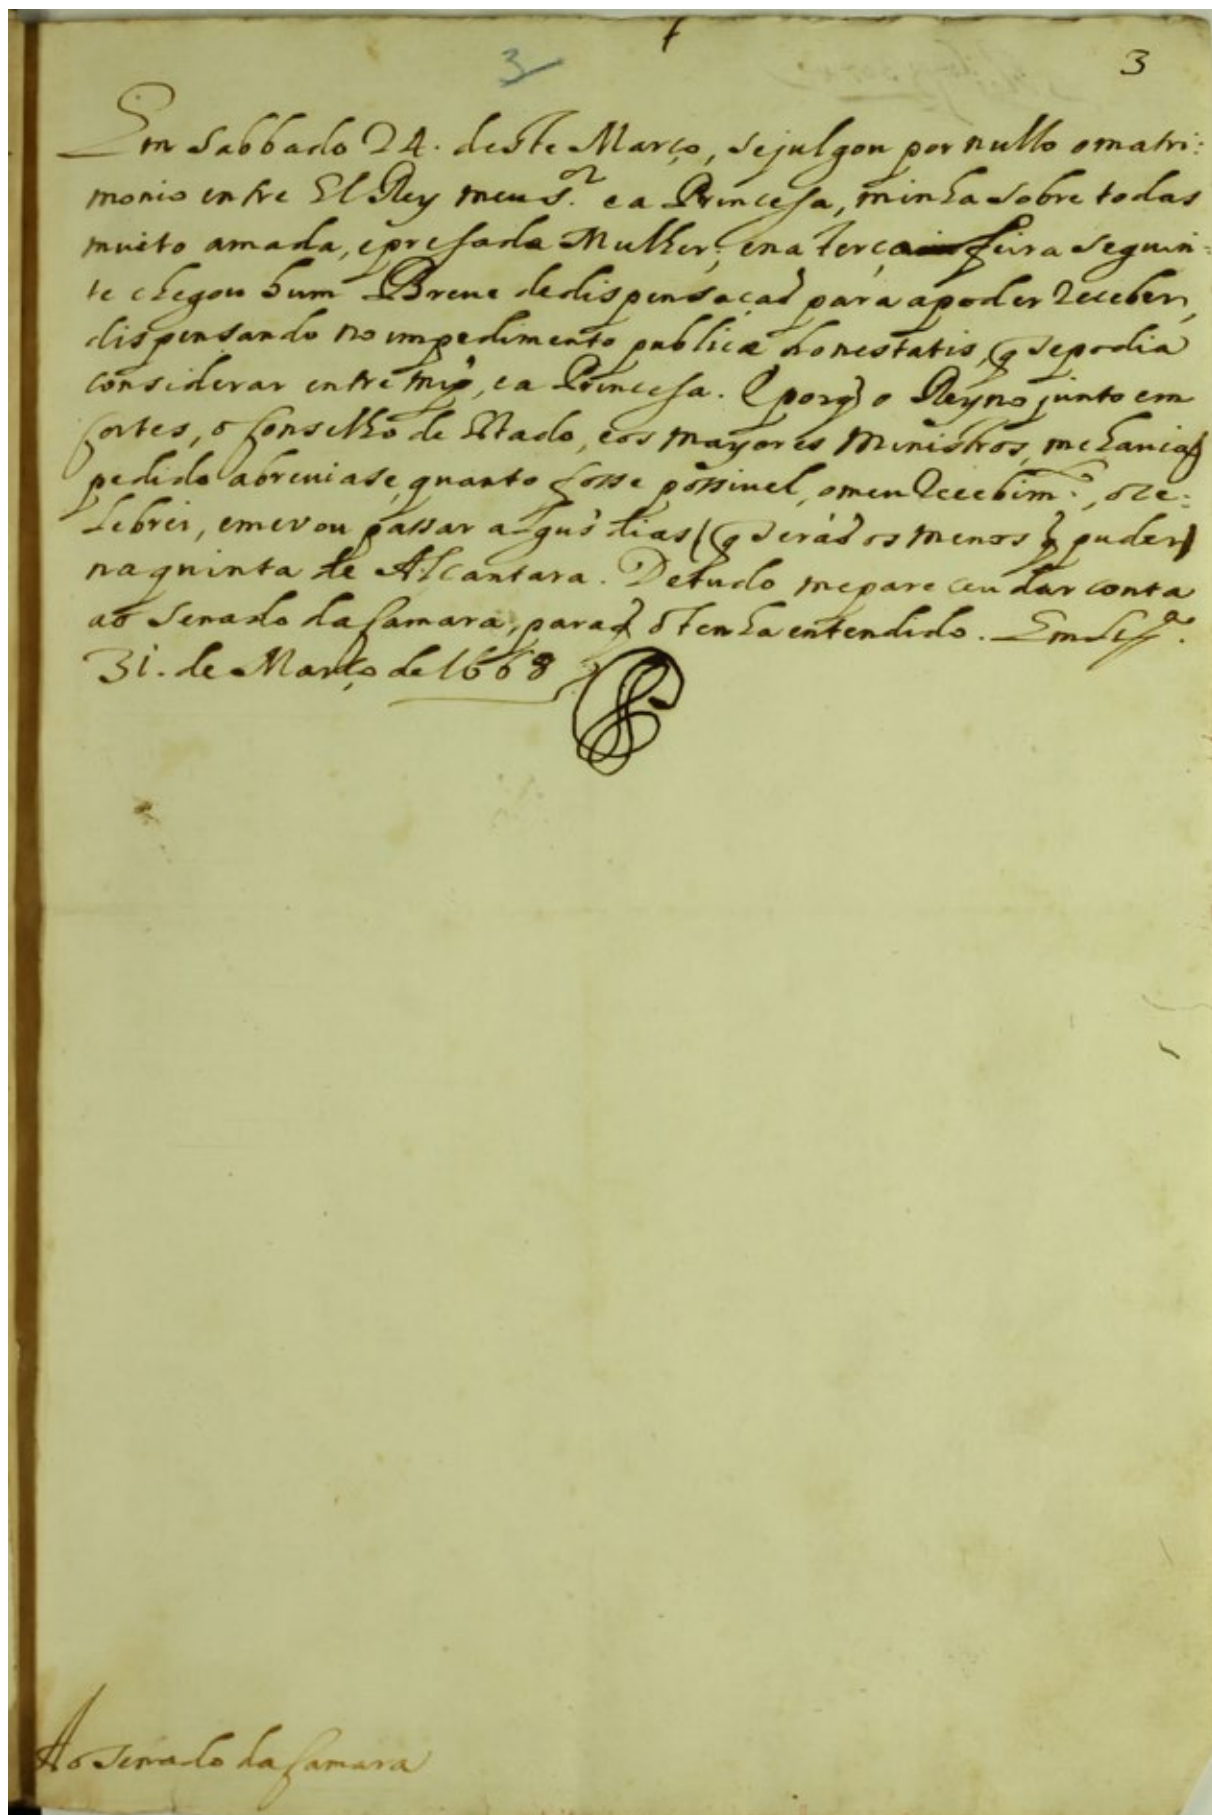 3 3
Em Sabbado 24. deste Março, sejulgou por nullo omatri:
monio entre El Rey meu s.ᵒʳ ea Princesa, minha sobre todas
muito amada, e presada Mulher; ena terça feira seguin:
te chegou hum Breue dedispensaçaõ para apoder receber,
dispensando no impedimento publicæ honestatis, q̃ sepodia
considerar entre my, ea Princesa. E porq̃ o Reyno junto em
Cortes, o Conselho de Estado, eos mayores Ministros, mehauiaõ
pedido abreuiase, quanto fosse possiuel, omeu Recebim.ᵗᵒ, oce:
lebrei, emevou passar algus dias (q̃ seraõ os menos q̃ puder)
naquinta de Alcantara. Detudo mepareceu dar conta
ao Senado da Camara, paraq̃ otenha entendido. Em Lix.ᵃ
31. de Março de 1668
Ao Senado da Camara